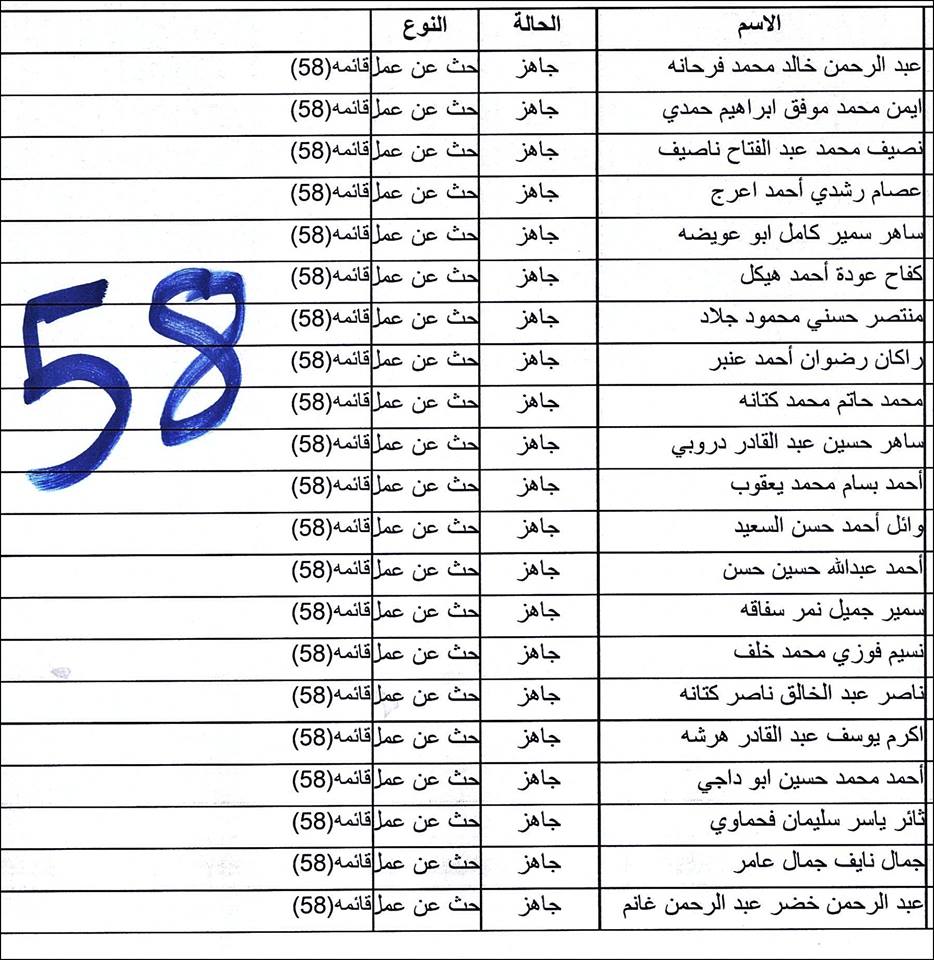 الاسم الحالة النوع
عبد الرحمن خالد محمد فرحانه جاهز حث عن عمل قائمه(58)
ايمن محمد موفق ابراهيم حمدي جاهز حث عن عمل قائمه(58)
نصيف محمد عبد الفتاح ناصيف جاهز حث عن عمل قائمه(58)
عصام رشدي أحمد اعرج جاهز حث عن عمل قائمه(58)
ساهر سمير كامل ابو عويضه جاهز حث عن عمل قائمه(58)
كفاح عودة أحمد هيكل جاهز حث عن عمل قائمه(58)
منتصر حسني محمود جلاد جاهز حث عن عمل قائمه(58)
راكان رضوان أحمد عنبر جاهز حث عن عمل قائمه(58)
محمد حاتم محمد كتانه جاهز حث عن عمل قائمه(58)
ساهر حسين عبد القادر دروبي جاهز حث عن عمل قائمه(58)
أحمد بسام محمد يعقوب جاهز حث عن عمل قائمه(58)
وائل أحمد حسن السعيد جاهز حث عن عمل قائمه(58)
أحمد عبدالله حسين حسن جاهز حث عن عمل قائمه(58)
سمير جميل نمر سفاقه جاهز حث عن عمل قائمه(58)
نسيم فوزي محمد خلف جاهز حث عن عمل قائمه(58)
ناصر عبد الخالق ناصر كتانه جاهز حث عن عمل قائمه(58)
اكرم يوسف عبد القادر هرشه جاهز حث عن عمل قائمه(58)
أحمد محمد حسين ابو داجي جاهز حث عن عمل قائمه(58)
ثائر ياسر سليمان فحماوي جاهز حث عن عمل قائمه(58)
جمال نايف جمال عامر جاهز حث عن عمل قائمه(58)
عبد الرحمن خضر عبد الرحمن غانم جاهز حث عن عمل قائمه(58)
58